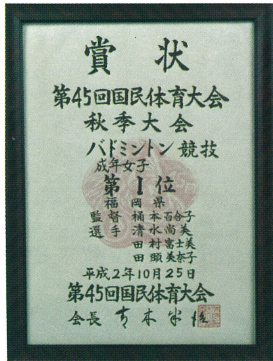 賞状
第45回国民体育大会
秋季大会
バドミントン競技
成年女子
第1位
福岡県
監督 桶本百合子
選手 清水尚美
田村富士美
田頭美奈子
平成2年10月25日
第45回国民体育大会
会長 青木